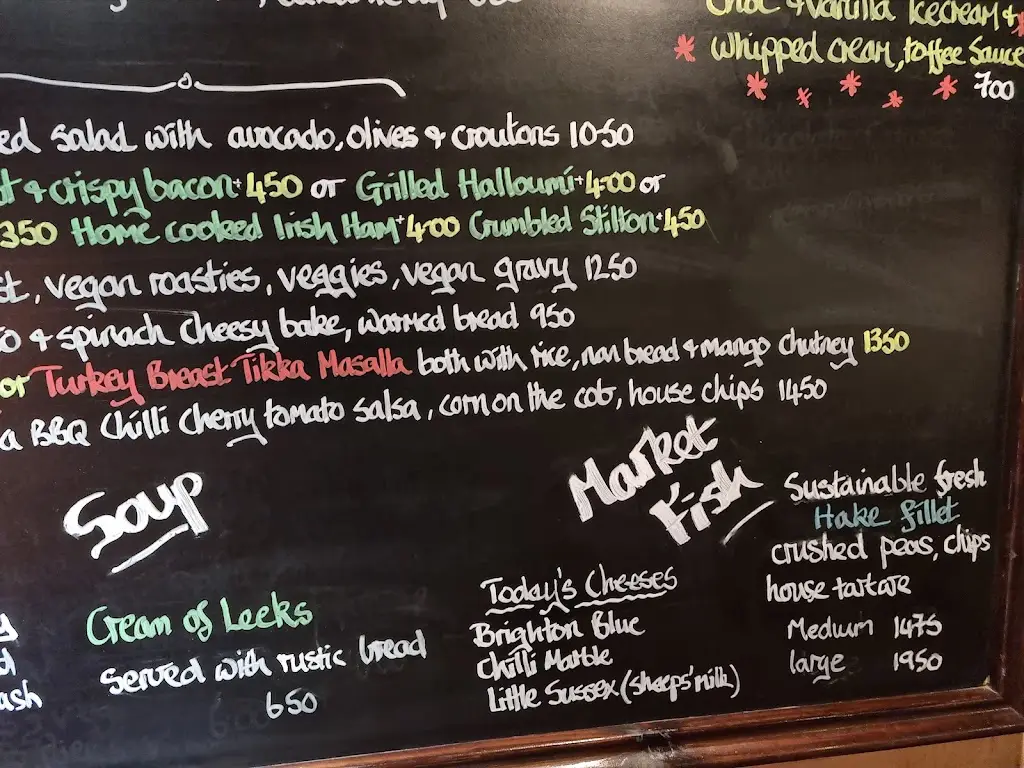 Choc & Vanilla Icecream &
whipped cream, toffee Sauce
700
ed salad with avocado, olives & croutons 1050
t & crispy bacon + 450 or Grilled Halloumi + 400 or
350 Home cooked Irish Ham + 400 Crumbled Stilton + 450
st, vegan roasties, veggies, vegan gravy 1250
o & spinach cheesy bake, warmed bread 950
or Turkey Breast Tikka Masalla both with rice, nan bread & mango chutney 1350
a BBQ Chilli Cherry tomato salsa, corn on the cob, house chips 1450
Soup
Cream of Leeks
Served with rustic bread
650
ash
Market
Fish
Today's Cheeses
Brighton Blue
Chilli Marble
Little Sussex (sheeps' milk)
Sustainable fresh
Hake fillet
crushed peas, chips
house tartare
Medium 1475
large 1950